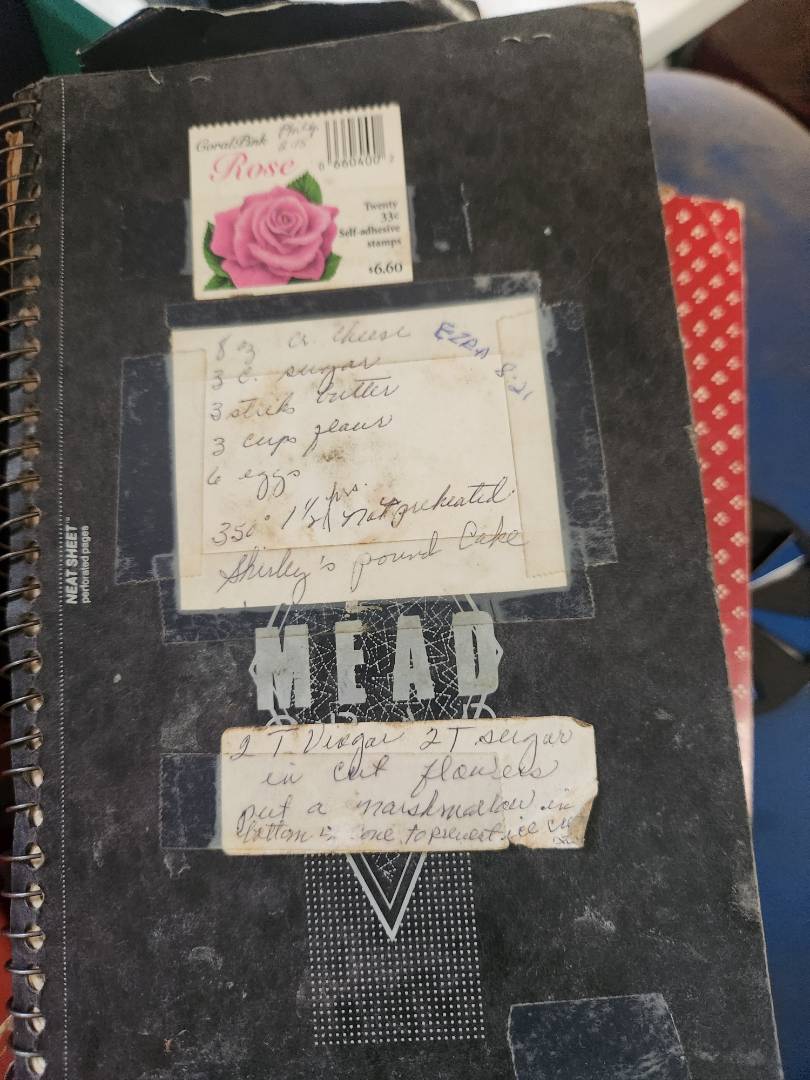 Coral Pink
Rose
6 660400 2
Twenty
33¢
Self-adhesive
stamps
$6.60
8 oz cr. cheese
EZRA 8:21
3 c. sugar
3 sticks butter
3 cups flour
6 eggs
350° 1 1/2 hrs. Not preheated
Shirley's pound Cake
NEAT SHEET™
perforated pages
MEAD
2 T Vinegar 2 T sugar
in cut flowers
put a marshmallow in
bottom of cone to prevent ice